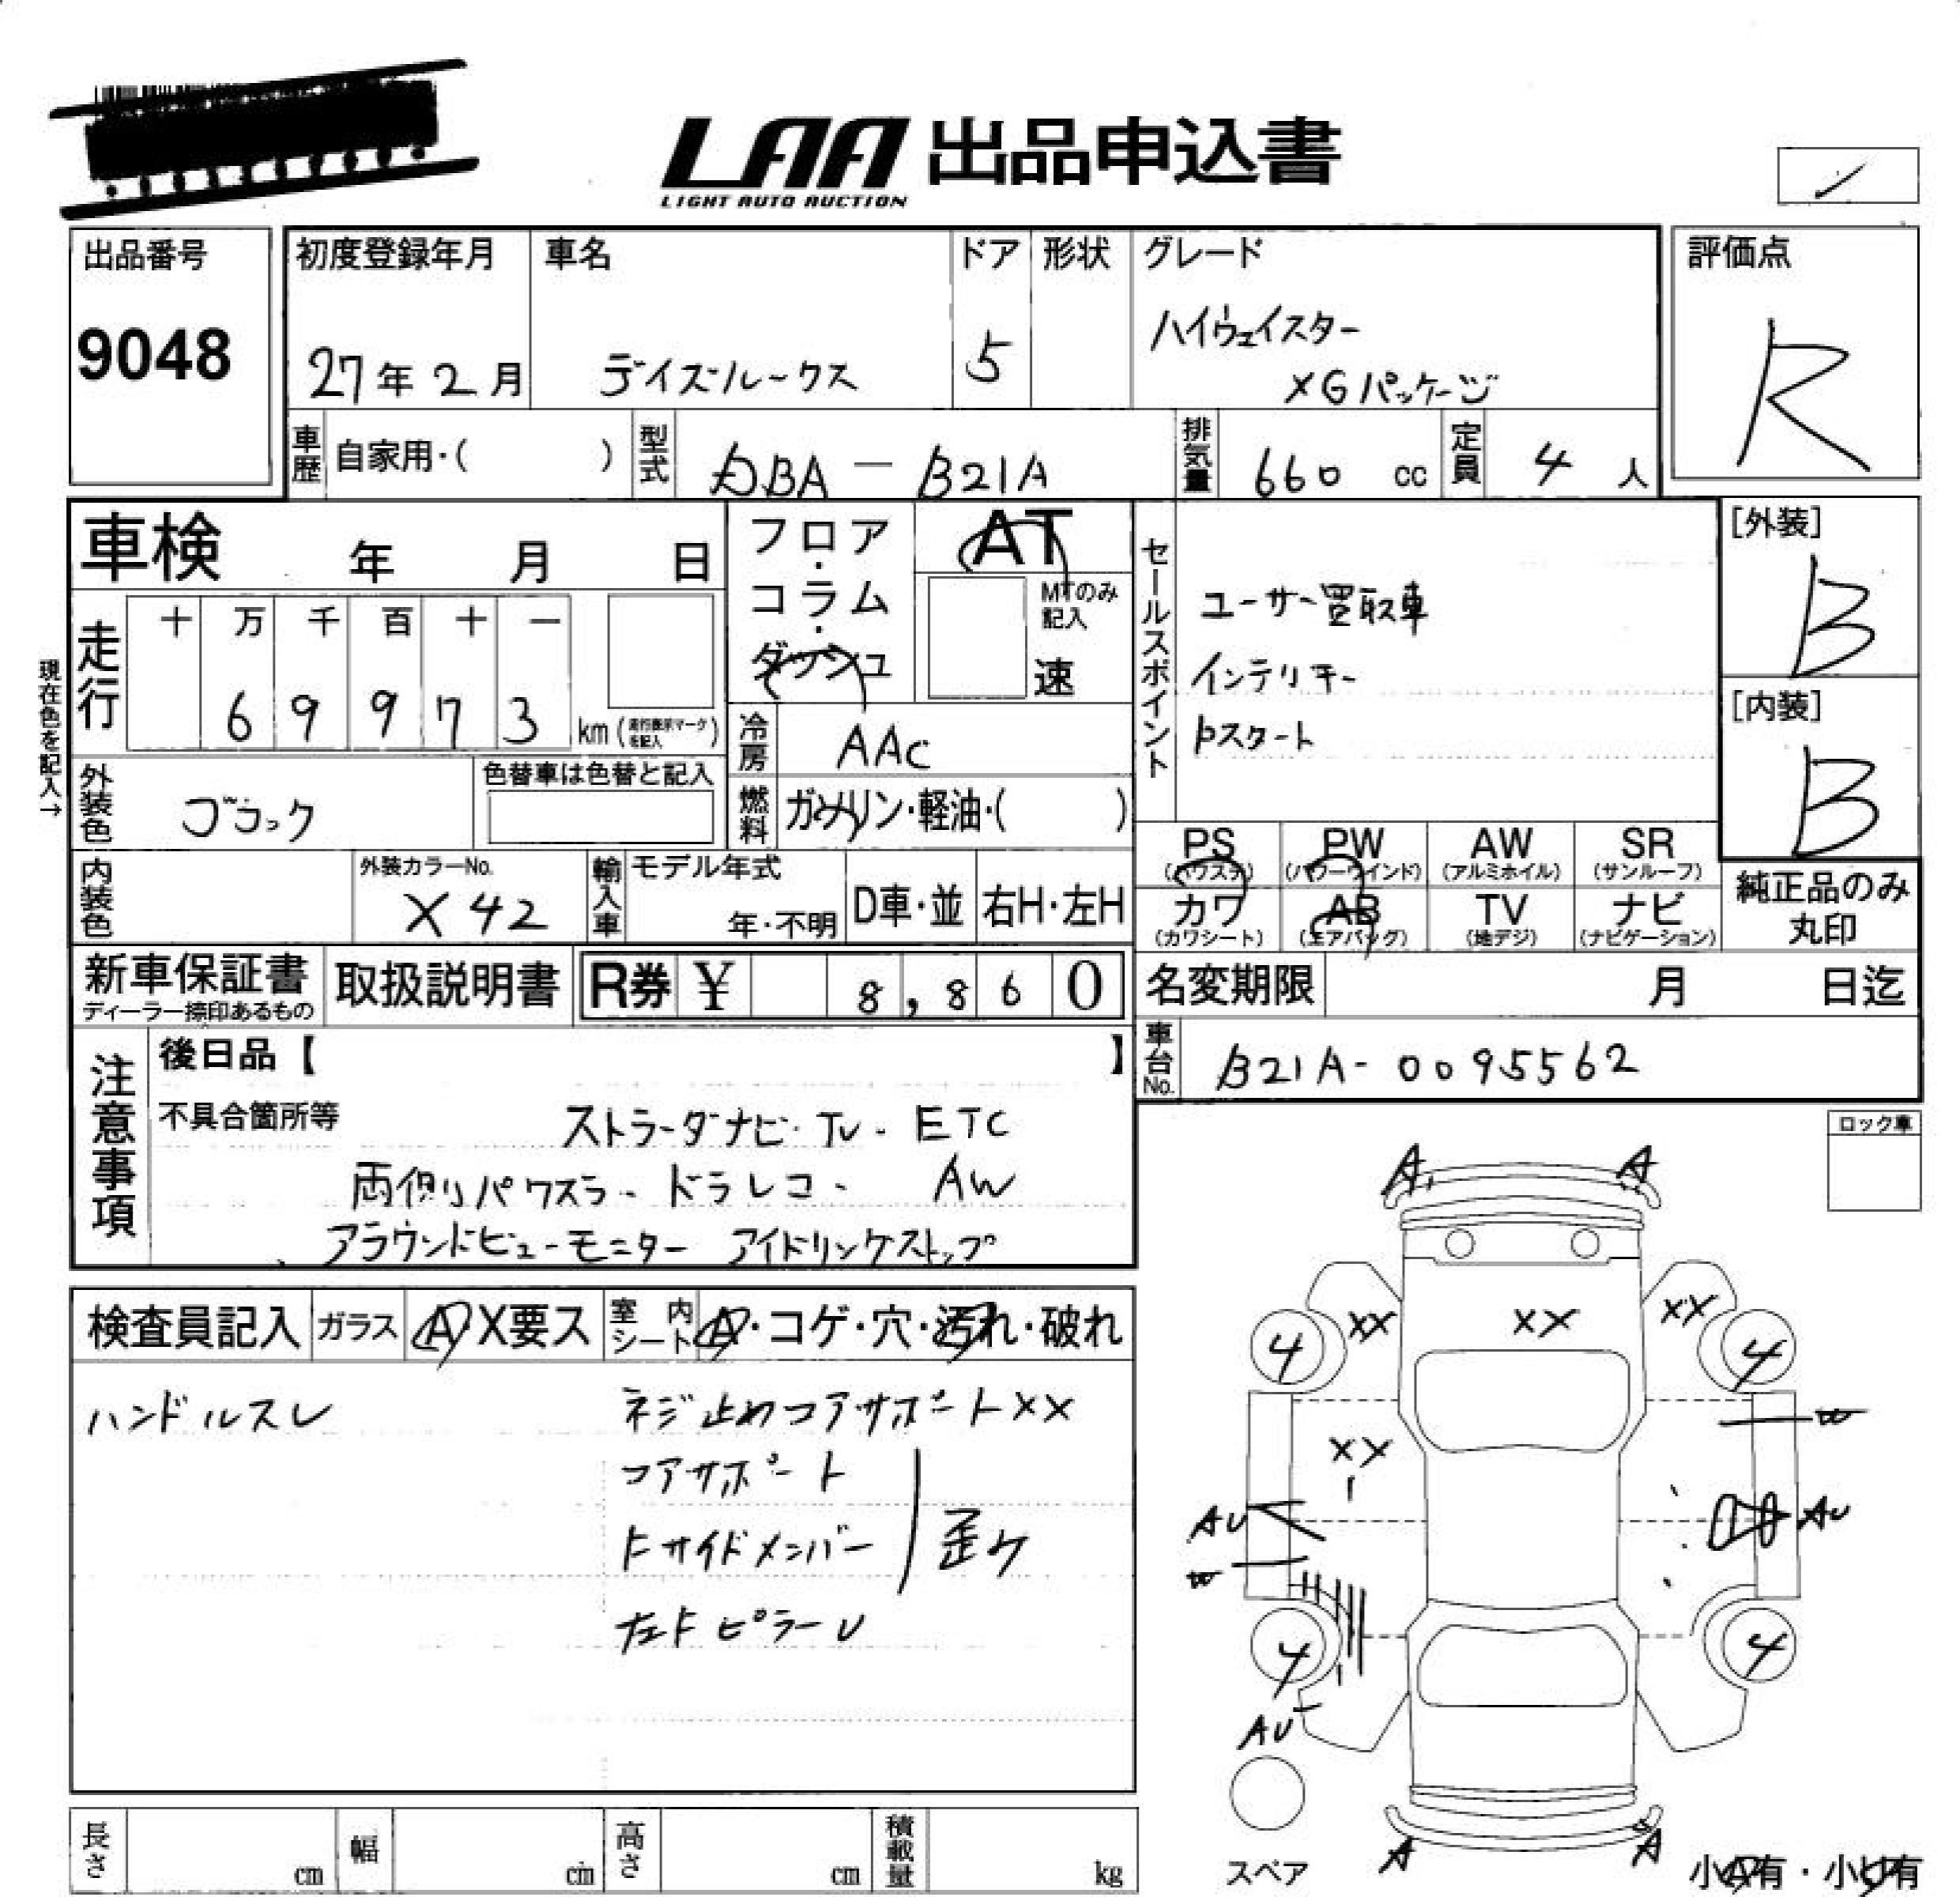 LAA 出品申込書
LIGHT AUTO AUCTION
出品番号
9048
初度登録年月
27年2月
車名
デイズルークス
ドア
5
形状
グレード
ハイウェイスター
XGパッケージ
評価点
R
車歴
自家用・( )
型式
DBA-B21A
排気量
660 cc
定員
4人
車検 年 月 日
フロア・コラム・ダッシュ
AT
MTのみ記入
速
セールスポイント
ユーザー買取車
インテリキー
Pスタート
[外装]
B
[内装]
B
現在色を記入→
走行
十 万 千 百 十 一
6 9 9 7 3 km (走行表示マークを記入)
冷房
AAC
外装色
ブラック
色替車は色替と記入
燃料
ガソリン・軽油・( )
PS (パワステ)
PW (パワーウインド)
AW (アルミホイル)
SR (サンルーフ)
カワ (カワシート)
AB (エアバッグ)
TV (地デジ)
ナビ (ナビゲーション)
純正品のみ丸印
内装色
外装カラーNo.
X42
輸入車
モデル年式
年・不明
D車・並
右H・左H
新車保証書
ディーラー捺印あるもの
取扱説明書
R券 ¥ 8,860
名変期限 月 日迄
車台No.
B21A-0095562
注意事項
後日品【 】
不具合箇所等
ストラーダナビ・TV・ETC
両側パワスラ・ドラレコ・ AW
アラウンドビューモニター アイドリングストップ
ロック車
検査員記入
ガラス
A X要ス
室内シート
A・コゲ・穴・汚れ・破れ
ハンドルスレ
ネジ止めコアサポートXX
コアサポート
Fサイドメンバー
歪ケ
左FピラーU
A
A
XX
XX
XX
4
4
W
XX
AU
AU
W
4
4
AU
A
A
スペア
小A有・小U有
長さ cm
幅 cm
高さ cm
積載量 kg